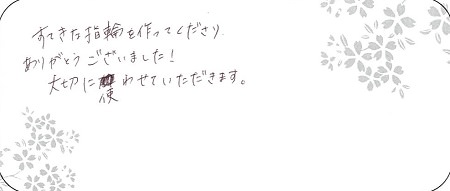 すてきな指輪を作ってくださり
ありがとうございました！
大切に使わせていただきます。